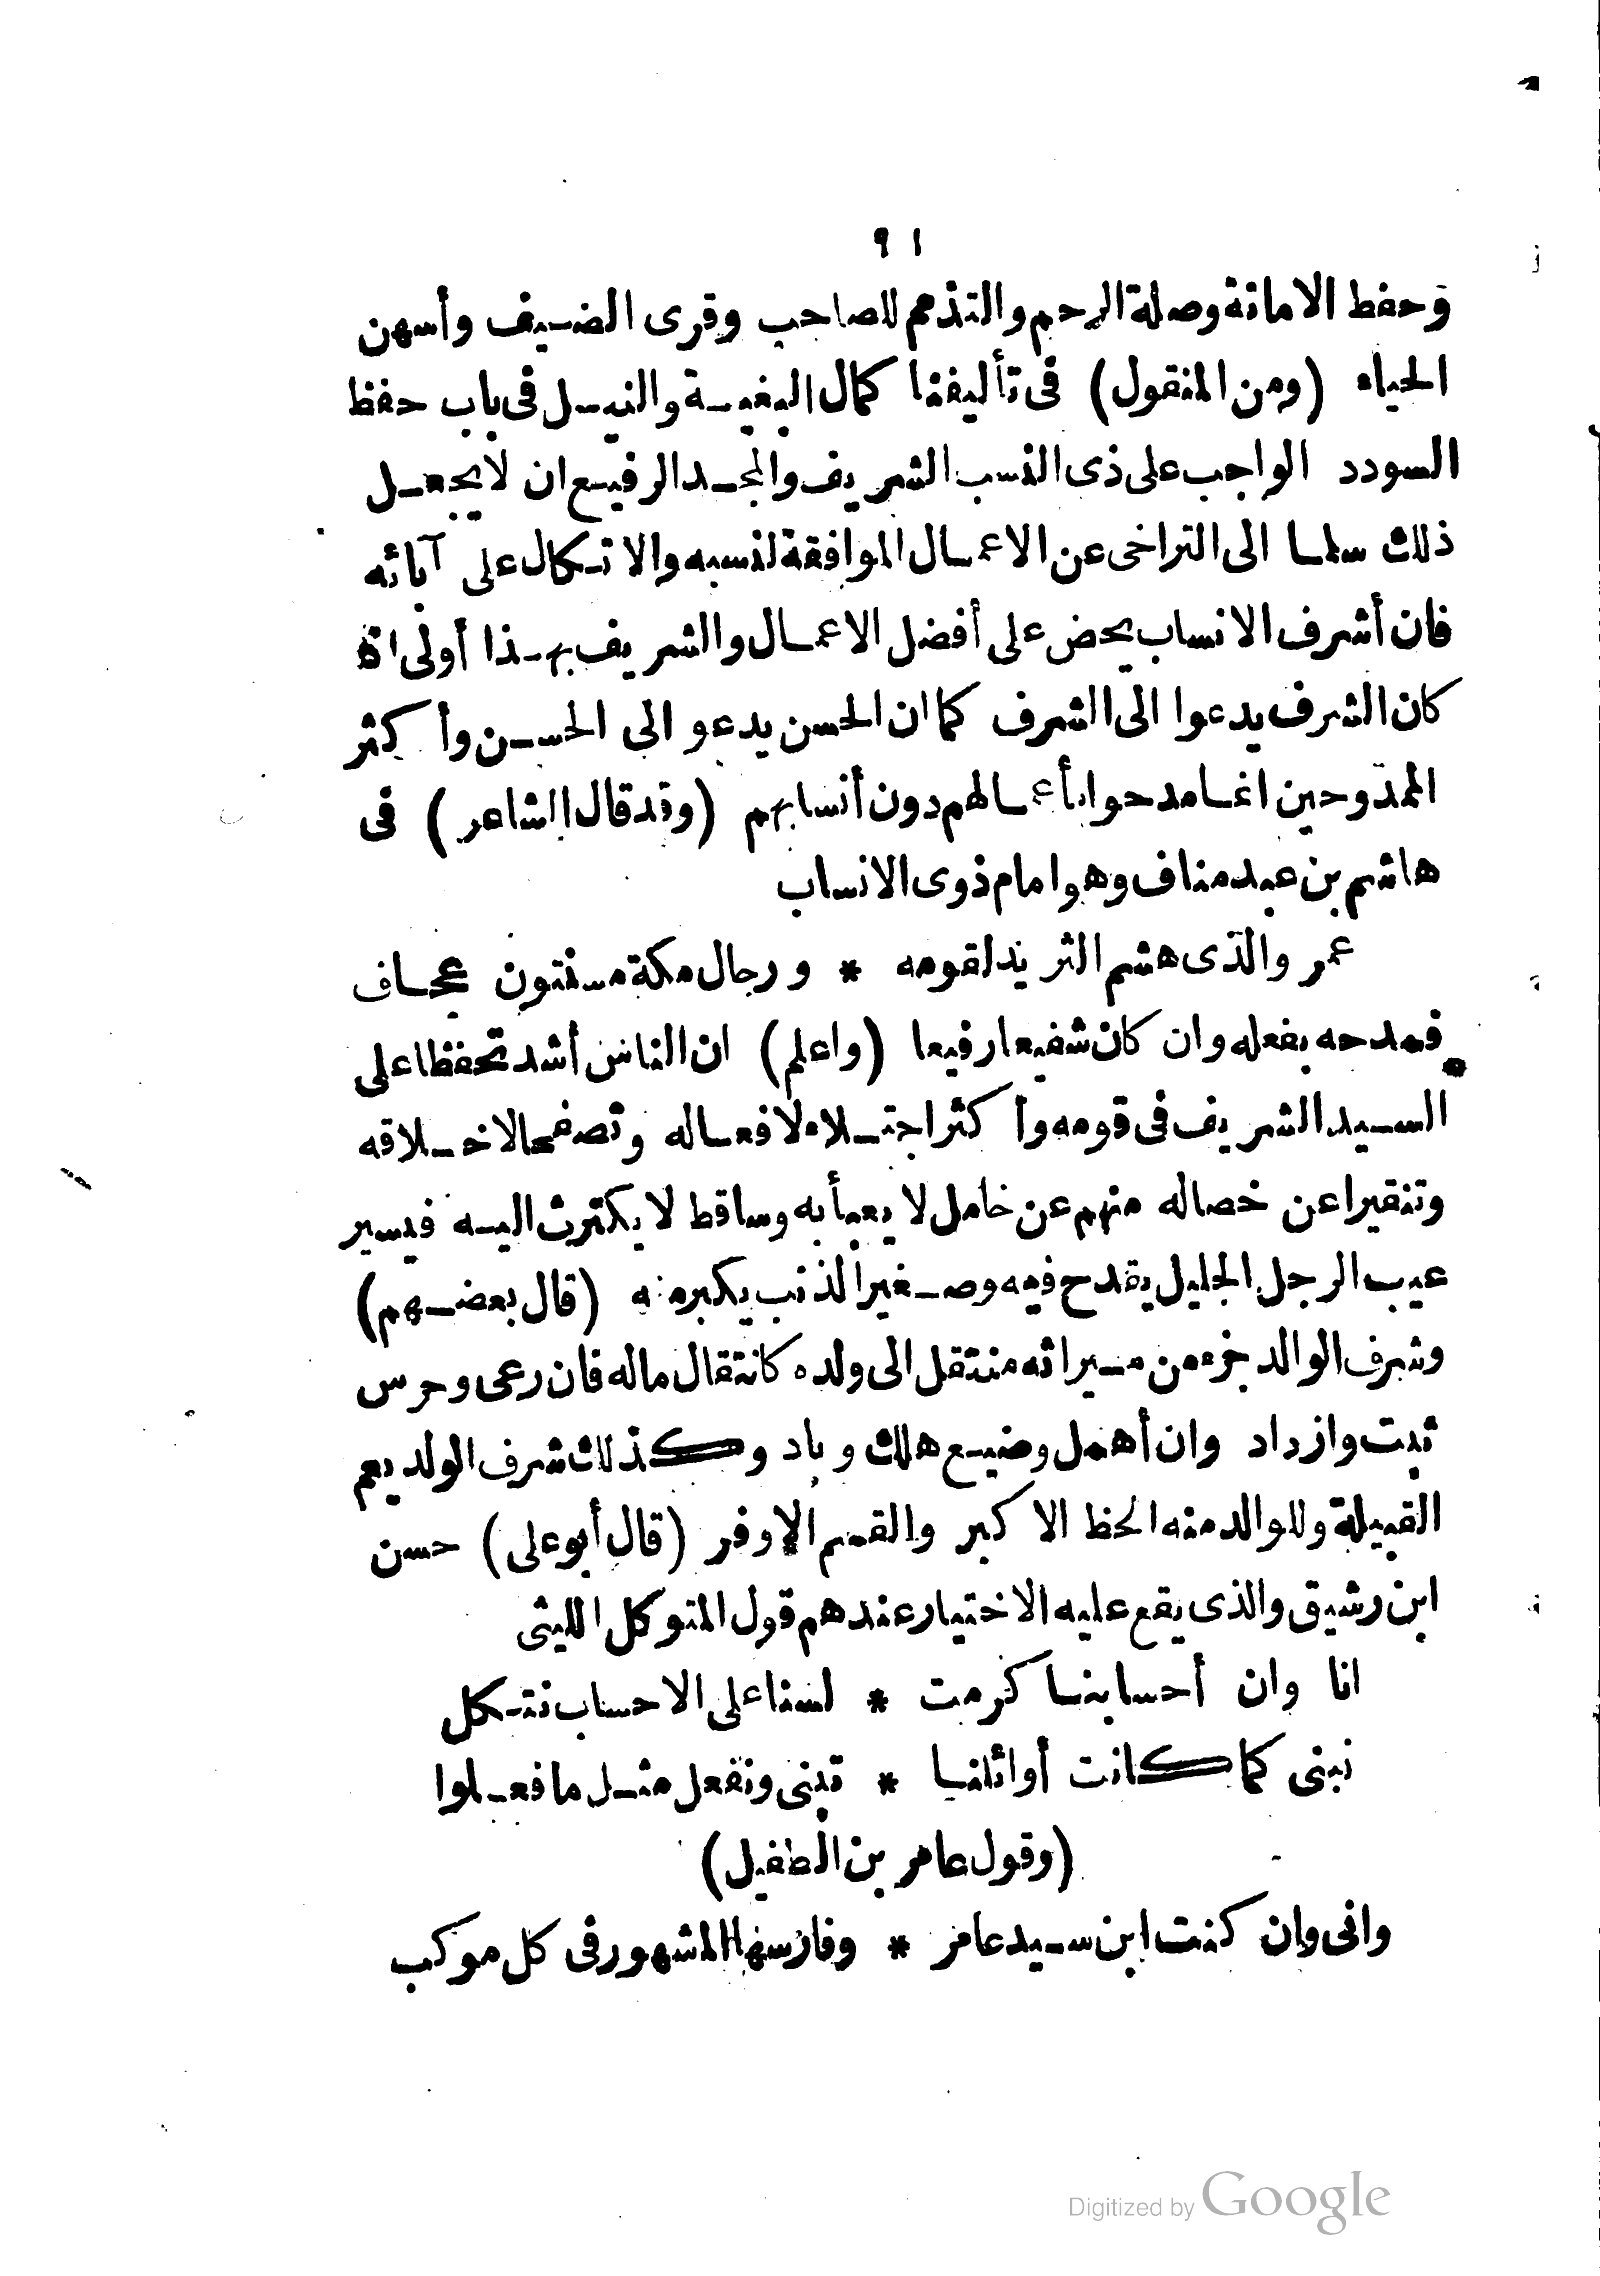 ٩١
وحفظ الامانة وصلة الرحم والتذمم للصاحب وقرى الضيف وأسهن
الحياء (ومن المنقول) فى تأليفنا كمال البغية والنيل فى باب حفظ
السودد الواجب على ذى النسب الشريف والمجد الرفيع ان لا يجعل
ذلك سلما الى التراخى عن الاعمال الموافقة لنسبه والاتكال على آبائه
فان أشرف الانساب يحض على أفضل الاعمال والشريف بهذا أولى اذ
كان الشرف يدعوا الى الشرف كما ان الحسن يدعو الى الحسن وأكثر
الممدوحين انما مدحوا بأعمالهم دون أنسابهم (وقد قال الشاعر) فى
هاشم بن عبد مناف وهو امام ذوى الانساب
عمر والذى هشم الثريد لقومه * ورجال مكة مسنتون عجاف
فمدحه بفعله وان كان شفيعا رفيعا (واعلم) ان الناس أشد تحفظا على
السيد الشريف فى قومه وأكثر اجتلاء لافعاله وتصفحا لاخلاقه
وتنقيرا عن خصاله منهم عن خامل لا يعبأ به وساقط لا يكترث اليه فيسير
عيب الرجل الجليل يقدح فيه وصغير الذنب يكبر منه (قال بعضهم)
وشرف الوالد جزء من ميراثه منتقل الى ولده كانتقال ماله فان رعى وحرس
ثبت وازداد وان أهمل وضيع هلك وباد وكذلك شرف الولد يعم
القبيلة وللوالد منه الحظ الاكبر والقسم الاوفر (قال أبو على) حسن
ابن رشيق والذى يقع عليه الاختيار عندهم قول المتوكل الليثى
انا وان أحسابنا كرمت * لسنا على الاحساب نتكل
نبنى كما كانت أوائلنا * تبنى ونفعل مثل ما فعلوا
(وقول عامر بن الطفيل)
وانى وان كنت ابن سيد عامر * وفارسها المشهور فى كل موكب
Digitized by Google